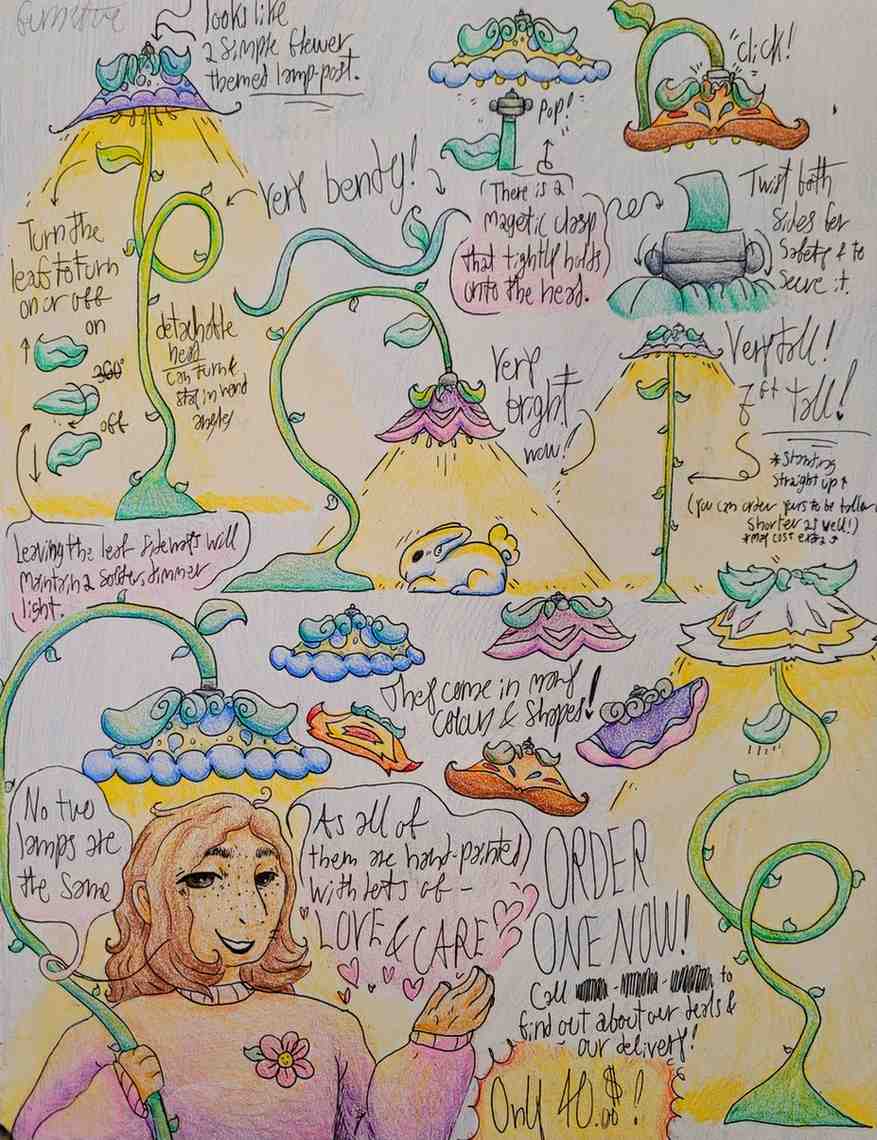 furniture
looks like
a simple flower
themed lamp-post.
Pop!
click!
Very bendy!
(There is a
magetic clasp
that tightly holds
onto the head.
Twist both
sides for
safety & to
secure it.
Turn the
leaf to turn
on or off
on
360°
off
detachable
head
can turn &
stay in hand
angles
Leaving the leaf sideways will
maintain a softer, dimmer
light.
Very
bright
wow!
Very tall!
7ft tall!
*Standing
straight up↑
(you can order yours to be taller
shorter as well!)
*may cost extra
They come in many
colours & shapes!
No two
lamps are
the same
As all of
them are hand-painted
with lots of -
LOVE & CARE
ORDER
ONE NOW!
Call - - to
find out about our deals &
our delivery!
Only 40.00$!